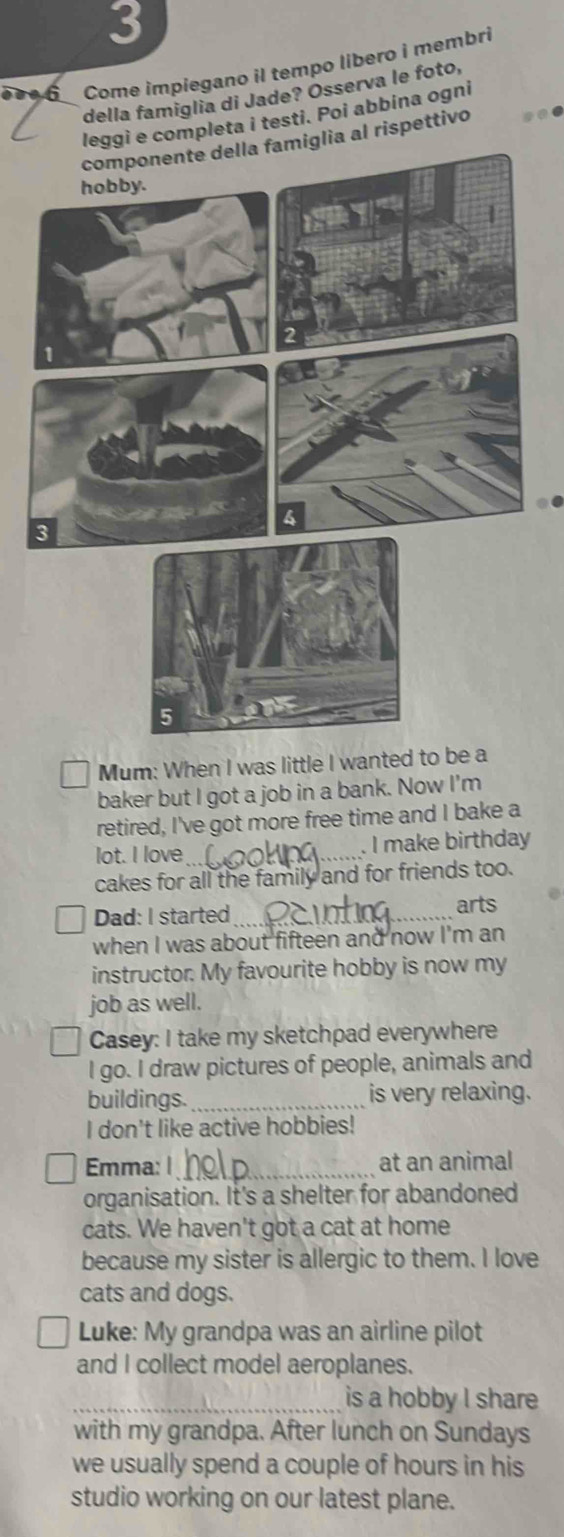 3
6 Come impiegano il tempo libero i membri
della famiglia di Jade? Osserva le foto,
leggi e completa i testi. Poi abbina ogni
componente della famiglia al rispettivo
hobby.
1
2
3
4
5
Mum: When I was little I wanted to be a
baker but I got a job in a bank. Now I'm
retired, I've got more free time and I bake a
lot. I love cooking. I make birthday
cakes for all the family and for friends too.
Dad: I started painting arts
when I was about fifteen and now I'm an
instructor. My favourite hobby is now my
job as well.
Casey: I take my sketchpad everywhere
I go. I draw pictures of people, animals and
buildings. ........ is very relaxing.
I don't like active hobbies!
Emma: I help at an animal
organisation. It's a shelter for abandoned
cats. We haven't got a cat at home
because my sister is allergic to them. I love
cats and dogs.
Luke: My grandpa was an airline pilot
and I collect model aeroplanes.
........ is a hobby I share
with my grandpa. After lunch on Sundays
we usually spend a couple of hours in his
studio working on our latest plane.